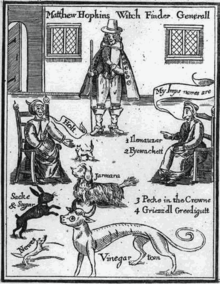 Matthew Hopkins Witch Finder Generall
My Imps names are
1 Ilemauzar
2 Pyewackett
3 Pecke in the Crowne
4 Griezell Greedigutt
Holt
Jarmara
Sacke & Sugar
Newes
Vinegar tom